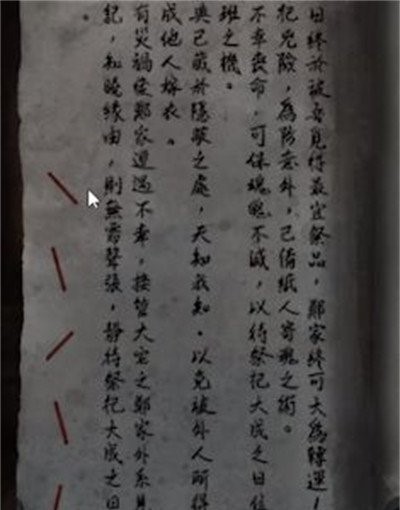 日終於被吾覓得最宜祭品，鄭家終可大為轉運！
祀兇險，為防意外，已備紙人寄魂之術。
不幸喪命，可保魂魄不滅，以待祭祀大成之日
班之機。
與已藏於隱蔽之處，天知我知。以免被外人所得
成他人嫁衣。
有災禍使鄭家遭遇不幸，接管大宅之鄭家外系見
記，知曉緣由，則無需聲張，靜待祭祀大成之日
。